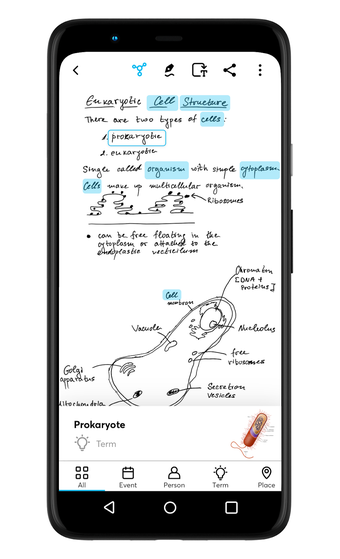 Eukaryotic Cell Structure
There are two types of cells:
1. prokaryotic
2. eukaryotic
Single called organism with simple cytoplasm.
Cells make up multicellular organism.
Ribosomes
• can be free floating in the
cytoplasm or attached to the
vecticulum
Cell
membran
Chromatin
[DNA +
Proteins]
Vacuole
Nucleolus
Golgi
apparatus
free
ribosomes
Secretion
vesicles
Mitochondria
Prokaryote
Term
All Event Person Term Place